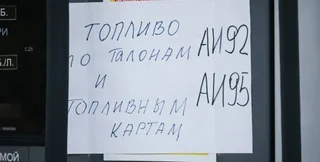 Б.
РИ
0.25
Б./Л.
МОЙ
ТОПЛИВО
ПО ТАЛОНАМ АИ92
И АИ95
ТОПЛИВНЫМ
КАРТАМ